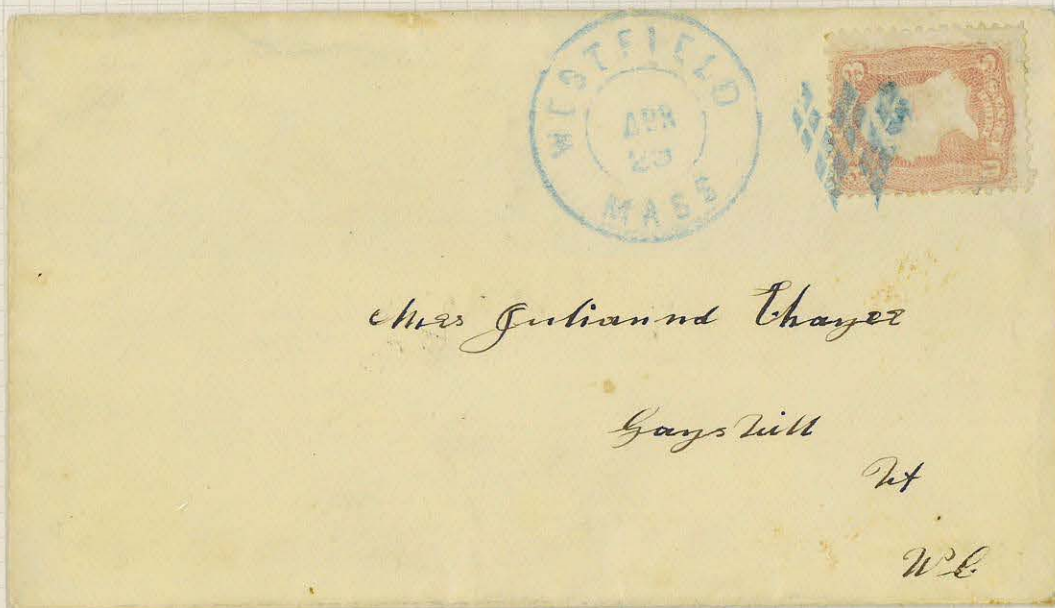 WESTFIELD
APR
MASS
3
Mrs Julianna Thayer
Gaysvill
Vt